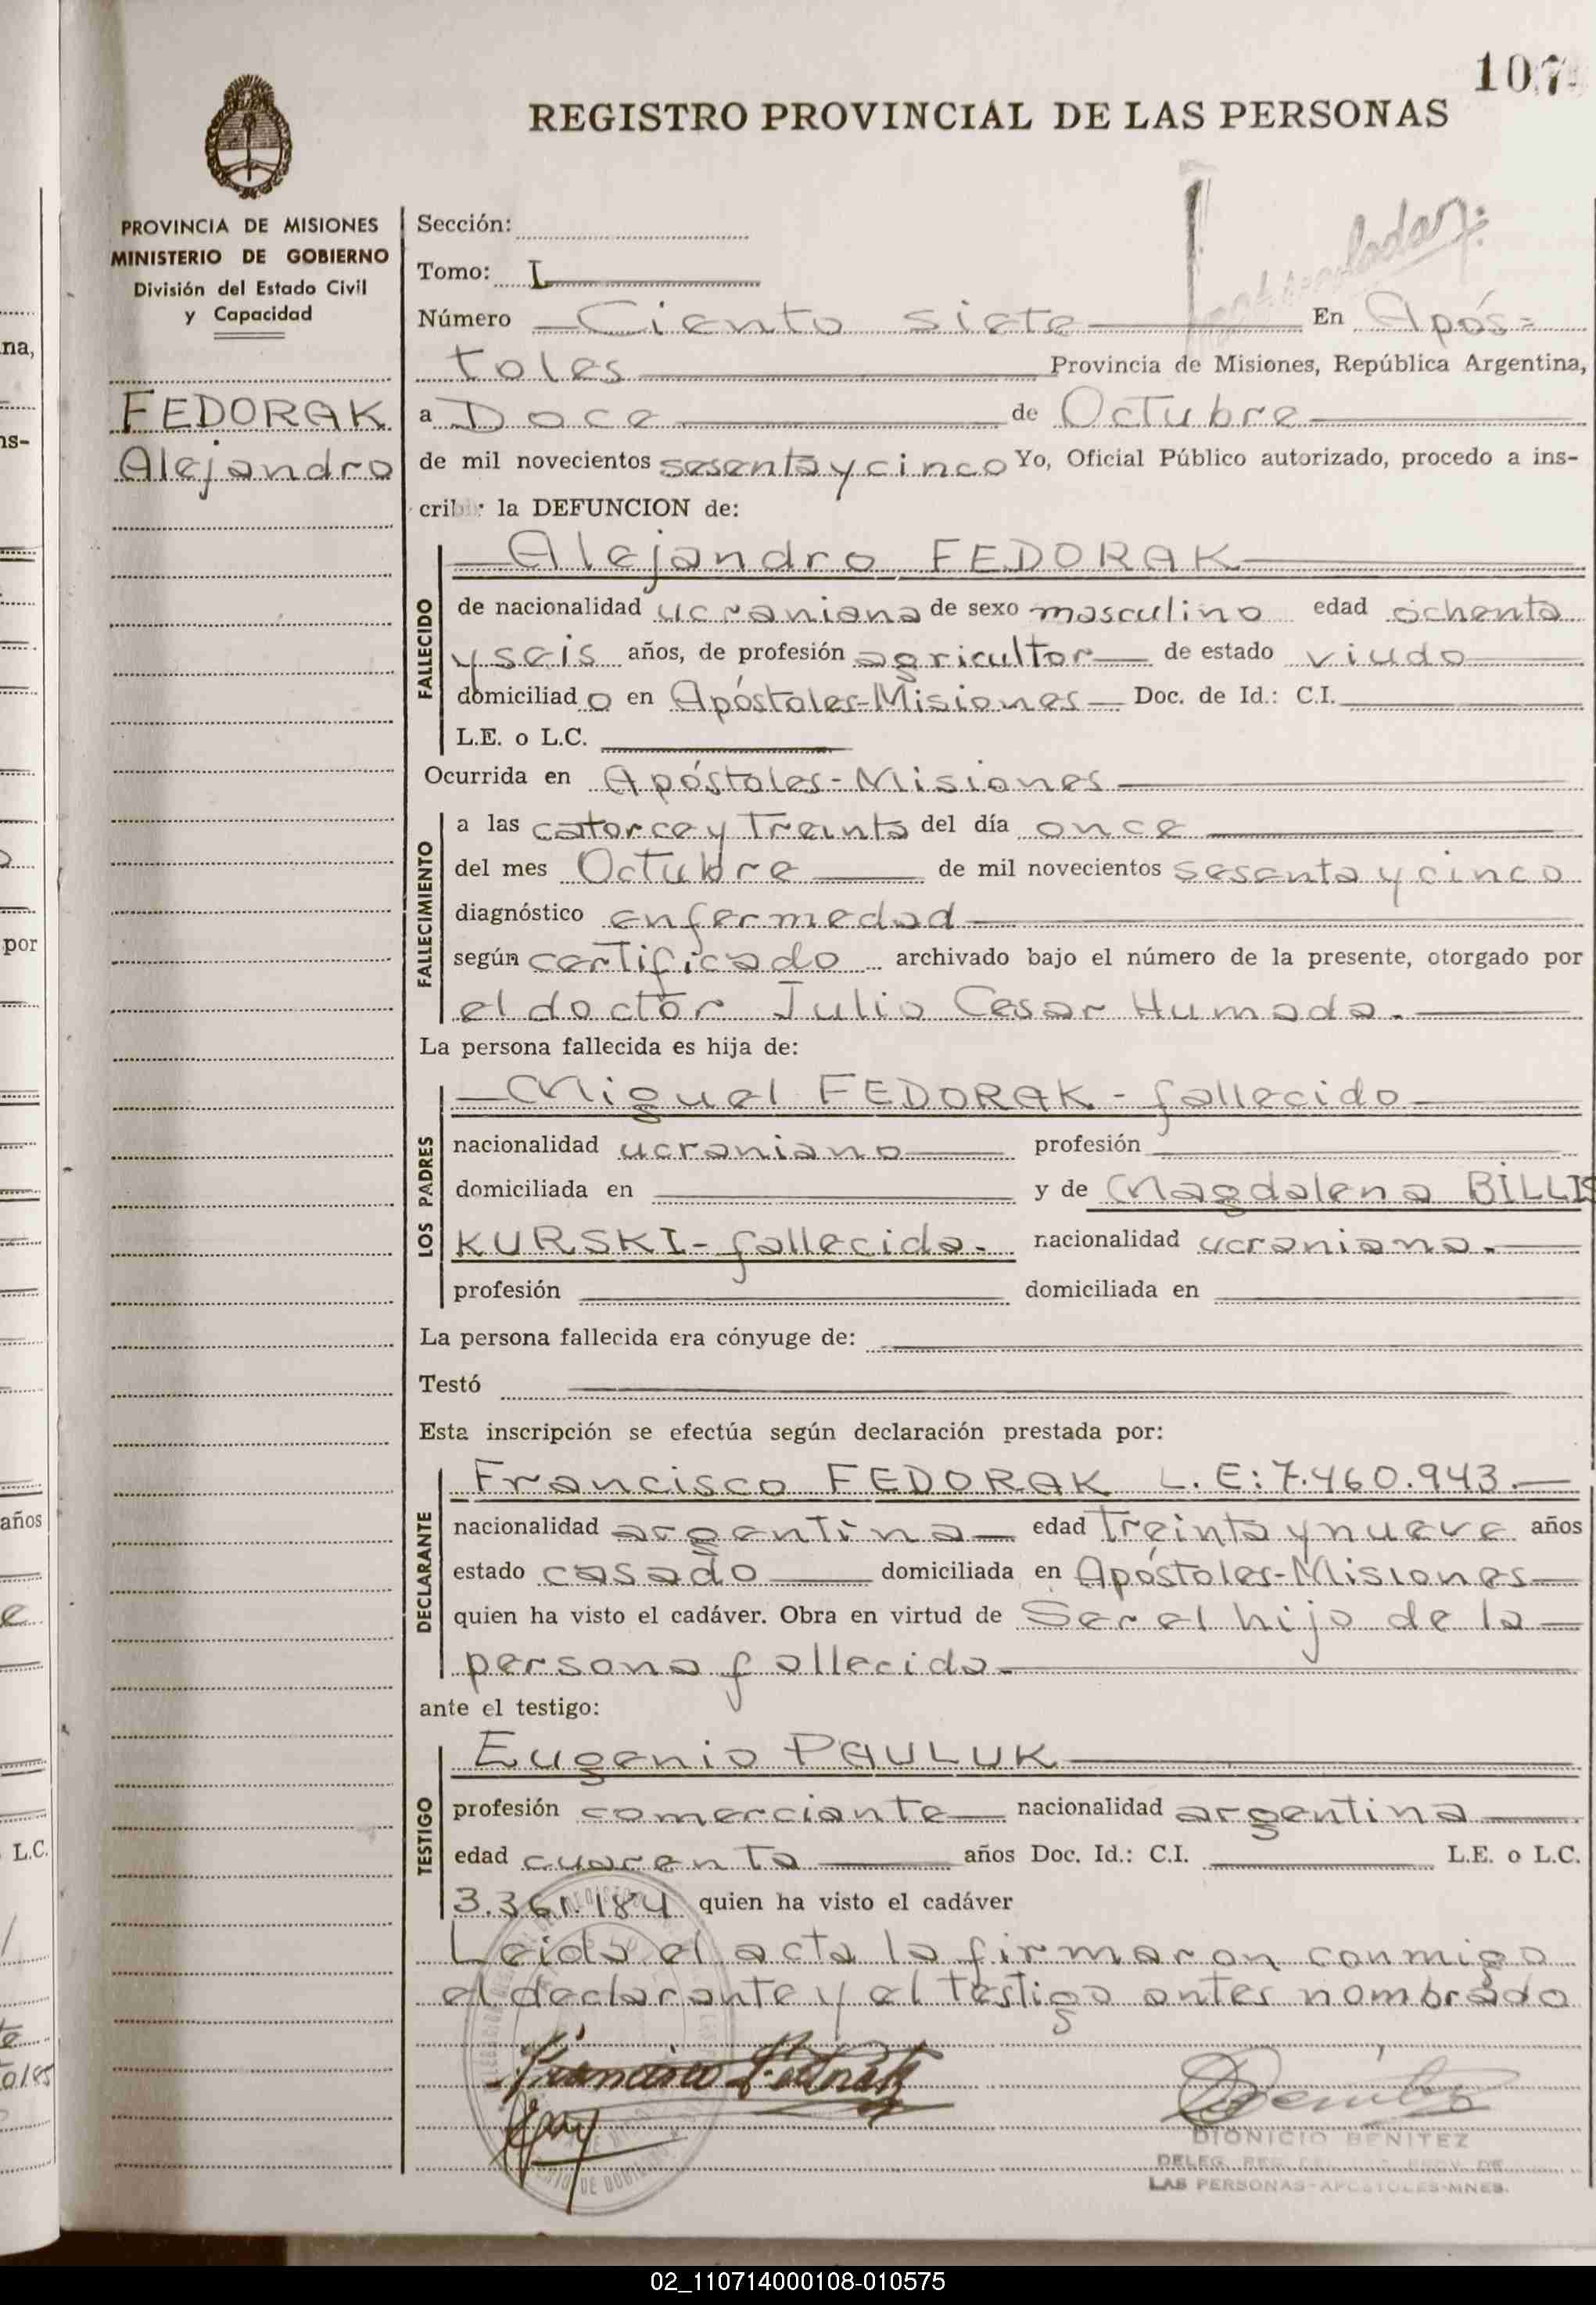 107
REGISTRO PROVINCIAL DE LAS PERSONAS
PROVINCIA DE MISIONES
MINISTERIO DE GOBIERNO
División del Estado Civil
y Capacidad
FEDORAK
Alejandro
Sección:
Tomo: I
Número Ciento siete En Após=
toles Provincia de Misiones, República Argentina,
a Doce de Octubre
de mil novecientos sesenta y cinco Yo, Oficial Público autorizado, procedo a ins-
cribir la DEFUNCION de:
FALLECIDO
Alejandro FEDORAK
de nacionalidad ucraniana de sexo masculino edad ochenta
y seis años, de profesión agricultor de estado viudo
domiciliado en Apóstoles-Misiones Doc. de Id.: C.I.
L.E. o L.C.
Ocurrida en Apóstoles-Misiones
FALLECIMIENTO
a las catorce y treinta del día once
del mes Octubre de mil novecientos sesenta y cinco
diagnóstico enfermedad
según certificado archivado bajo el número de la presente, otorgado por
el doctor Julio Cesar Humada.
La persona fallecida es hija de:
LOS PADRES
Miguel FEDORAK - fallecido
nacionalidad ucraniano profesión
domiciliada en y de Magdalena BILLIS
KURSKI - fallecida. nacionalidad ucraniana.
profesión domiciliada en
La persona fallecida era cónyuge de:
Testó
Esta inscripción se efectúa según declaración prestada por:
DECLARANTE
Francisco FEDORAK L.E: 7.460.943.
nacionalidad argentina edad treinta y nueve años
estado casado domiciliada en Apóstoles-Misiones
quien ha visto el cadáver. Obra en virtud de Ser el hijo de la
persona fallecida
ante el testigo:
TESTIGO
Eugenio PAULUK
profesión comerciante nacionalidad argentina
edad cuarenta años Doc. Id.: C.I. L.E. o L.C.
3.361.184 quien ha visto el cadáver
Leida el acta la firmaron conmigo
el declarante y el testigo antes nombrado
Francisco Fedorak
DBenitez
DIONICIO BENITEZ
LAS PERSONAS-APOSTOLES-MNES.
na,
ns-
por
años
L.C.
02_110714000108-010575